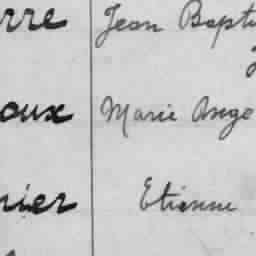 rre Jean Bapti
oux Marie Ange
nier Etienne